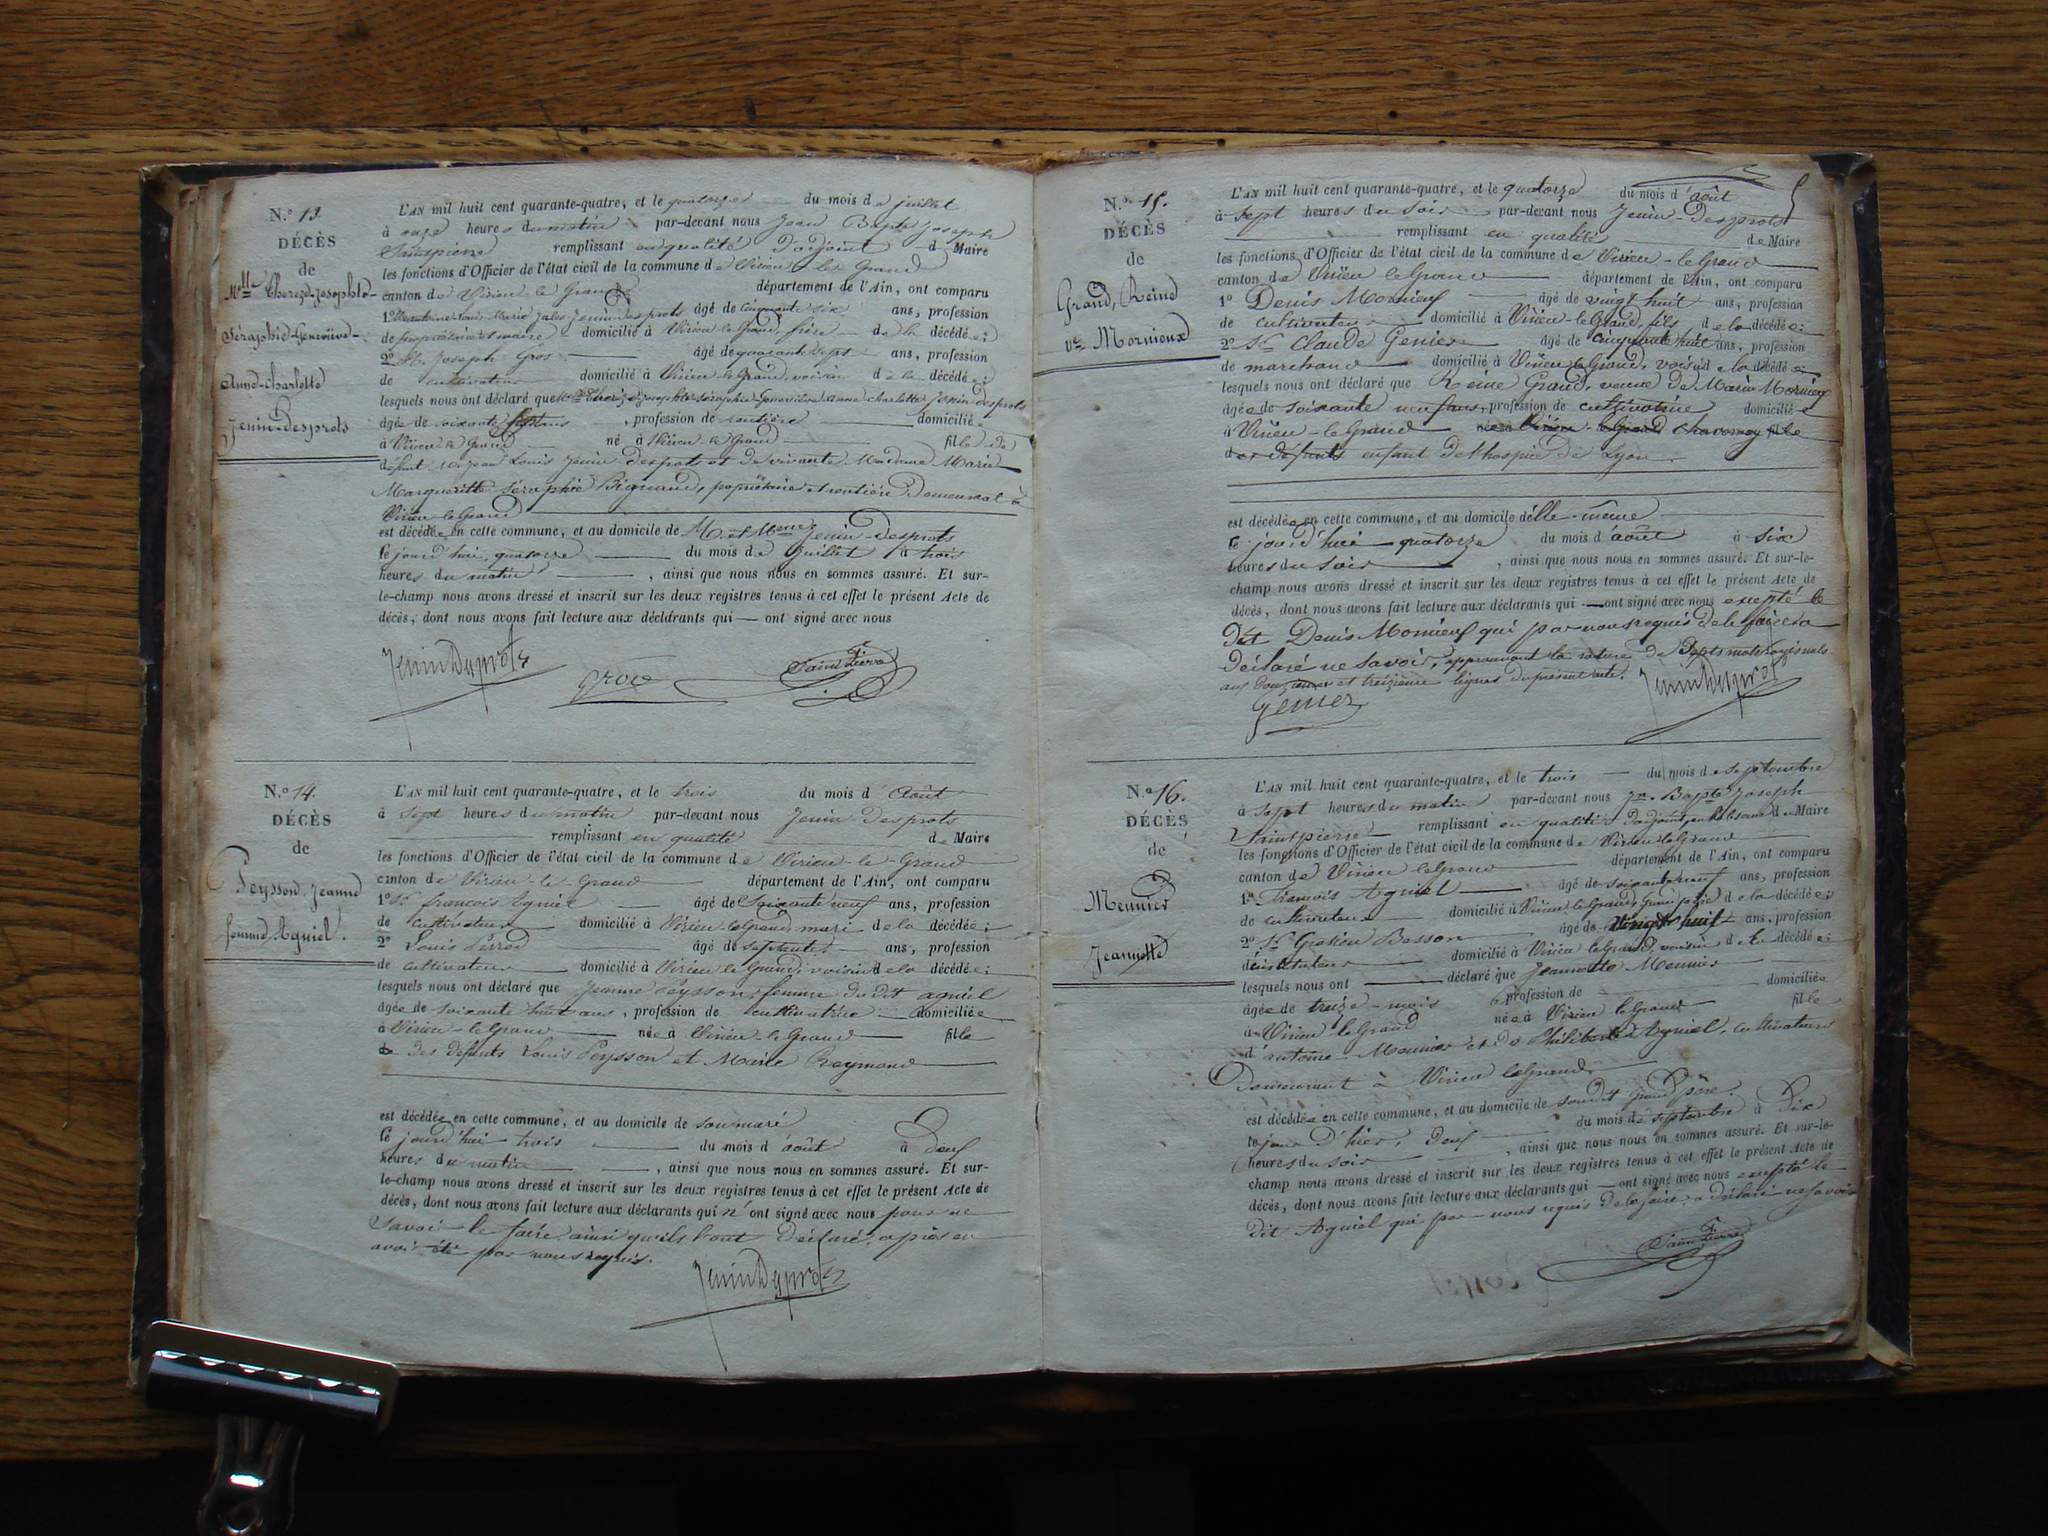 N.° 13.
DÉCÈS
de
M.elle Thereze-Josephte-
Séraphie-Geneviève-
Anne-Charlotte
Jenin-Desprots
L'AN mil huit cent quarante-quatre, et le quatorze du mois de juillet
à onze heures du matin par-devant nous Jean Bapte joseph
Saintpierre remplissant en qualité d'adjoint de Maire
les fonctions d'Officier de l'état civil de la commune de Virieu-le-Grand
canton de Virieu-le-Grand département de l'Ain, ont comparu
1° Louis Marie Jules Jenin desprots âgé de cinquante six ans, profession
de propriétaire et maire domicilié à Virieu le Grand, frère de la décédée;
2° Sr. Joseph Gros âgé de quarante sept ans, profession
de cultivateur domicilié à Virieu le Grand, voisin de la décédée;
lesquels nous ont déclaré que Mlle Thereze josephte séraphie Geneviève anne charlotte Jenin-desprots
âgée de soixante sept ans, profession de rentière domiciliée
à Virieu le Grand né à Virieu-le-Grand fille de
défunt Mr. Jean Louis Jenin desprots et de vivante Madame Marie
Margueritte Séraphie propriétaire et rentière demeurant à
Virieu-le-Grand
est décédée en cette commune, et au domicile de M. et Jenin-desprots
le jourd'hui quatorze du mois de juillet à trois
heures du matin, ainsi que nous nous en sommes assuré. Et sur-
le-champ nous avons dressé et inscrit sur les deux registres tenus à cet effet le présent Acte de
décès, dont nous avons fait lecture aux déclarants qui ont signé avec nous
JeninDesprots gros Saint Pierre
N.° 14.
DÉCÈS
de
Peysson, Jeanne
femme Aguiel.
L'AN mil huit cent quarante-quatre, et le trois du mois d'Août
à sept heures du matin par-devant nous Jenin Desprots
remplissant en qualité de Maire
les fonctions d'Officier de l'état civil de la commune de Virieu-le-Grand
canton de Virieu-le-Grand département de l'Ain, ont comparu
1° Sr. francois Aguiel âgé de Soixante neuf ans, profession
de cultivateur domicilié à Virieu-le Grand mari de la décédée;
2° Louis Perred âgé de septante ans, profession
de cultivateur domicilié à Virieu le Grand, voisin de la décédée;
lesquels nous ont déclaré que Jeanne Peysson, femme du dit aguiel
âgée de soixante huit ans, profession de cultivatrice domiciliée
à Virieu-le Grand née à Virieu-le Grand fille
de des defunts Louis Peysson et Marie Reymond
est décédée en cette commune, et au domicile de son mari
le jourd'hui trois du mois d'août à deux
heures du matin, ainsi que nous nous en sommes assuré. Et sur-
le-champ nous avons dressé et inscrit sur les deux registres tenus à cet effet le présent Acte de
décès, dont nous avons fait lecture aux déclarants qui n'ont signé avec nous pour ne
savoir le faire, ainsi qu'ils l'ont déclaré, après en
avoir été par nous requis.
JeninDesprots
5
N.° 15.
DÉCÈS
de
Grand, Reine
ve. Mornieux
L'AN mil huit cent quarante-quatre, et le quatorze du mois d'août
à sept heures du soir par-devant nous Jenin-desprots
remplissant en qualité de Maire
les fonctions d'Officier de l'état civil de la commune de Virieu-le Grand
canton de Virieu le Grand département de l'Ain, ont comparu
1° Denis Mornieux âgé de vingt huit ans, profession
de cultivateur domicilié à Virieu-le Grand, fils de la décédée;
2° Sr. Claude Genier âgé de cinquante huit ans, profession
de marchand domicilié à Virieu-le Grand, voisin de la décédée;
lesquels nous ont déclaré que Reine Grand, veuve de Marin Mornieux
âgée de soixante neuf ans, profession de cultivatrice domiciliée
à Virieu-le Grand née à Virieu-le Grand fille
des défunts enfant de l'hospice de Lyon
est décédée en cette commune, et au domicile d'elle-même
le jourd'hui quatorze du mois d'août à six
heures du soir, ainsi que nous nous en sommes assuré. Et sur-le-
champ nous avons dressé et inscrit sur les deux registres tenus à cet effet le présent Acte de
décès, dont nous avons fait lecture aux déclarants qui ont signé avec nous excepté le
dit Denis Mornieux qui par nous requis de le faire a
déclaré ne savoir, approuvant la rature de sept mots
aux douzieme et treizième lignes du présent acte.
genier JeninDesprots
N.° 16.
DÉCÈS
de
Meunier
Jeannette
L'AN mil huit cent quarante-quatre, et le trois du mois de septembre
à sept heures du matin par-devant nous Jn. Bapte Joseph
Saintpierre remplissant en qualité d'adjoint en l'absence du Maire
les fonctions d'Officier de l'état civil de la commune de Virieu-le Grand
canton de Virieu le Grand département de l'Ain, ont comparu
1° François Aguiel âgé de soixante neuf ans, profession
de cultivateur domicilié à Virieu le Grand, grand père de la décédée;
2° Sr. Besson âgé de vingt huit ans, profession
d'instituteur domicilié à Virieu le Grand, voisin de la décédée;
lesquels nous ont déclaré que Jeannette Meunier
âgée de treize mois profession de domiciliée
à Virieu le Grand née à Virieu le Grand fille
d'antoine Meunier et de Philiberte Aguiel, cultivateurs
Demeurant à Virieu le Grand.
est décédée en cette commune, et au domicile de son dit Grand père.
le jour d'hier, deux du mois de septembre à dix
heures du soir, ainsi que nous nous en sommes assuré. Et sur-le-
champ nous avons dressé et inscrit sur les deux registres tenus à cet effet le présent Acte de
décès, dont nous avons fait lecture aux déclarants qui ont signé avec nous excepté le
dit Aguiel qui par nous requis de le faire a déclaré ne savoir
Saint Pierre